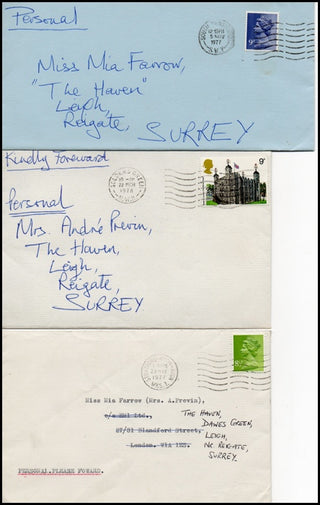 Personal
9P
1977
Miss Mia Farrow,
"The Haven"
Leigh,
Reigate,
SURREY
Kindly Foreward
9P
1978
Personal
Mrs. André Previn,
The Haven,
Leigh,
Reigate,
SURREY
1977
Miss Mia Farrow (Mrs. A.Previn),
c/o EMI Ltd.,
THE HAVEN,
DAWES GREEN,
Blandford Street,
LEIGH,
London. W1A 1ES.
NR. REIGATE,
SURREY.
PERSONAL.PLEASE FOWARD.